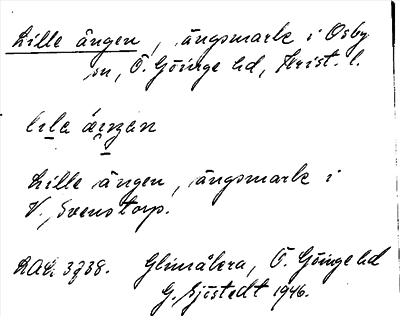 Lille ängen, ängsmark i Osby
sn, Ö. Göinge hd, Krist. l.
lıla ängen, ängsmark i
V. Svenstorp.
Glimåkra, Ö. Göinge hd
G. Sjöstedt 1946.